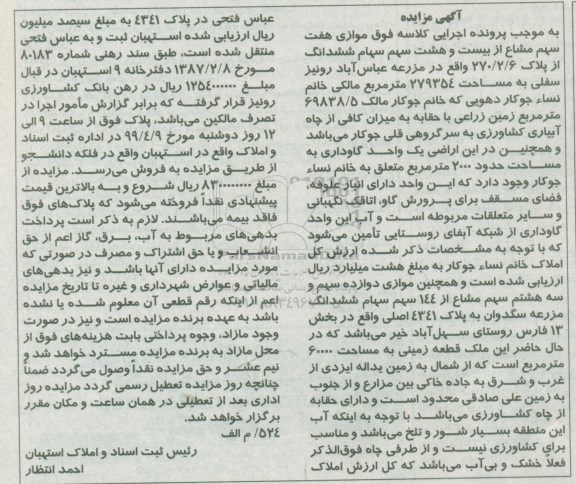 آگهی مزایده
به موجب پرونده اجرایی کلاسه فوق موازی هفت
سهم مشاع از بیست و هشت سهم سهام ششدانگ
از پلاک ۲۷۰/۲/۶ واقع در مزرعه عباس‌آباد رونیز
سفلی به مساحت ۲۷۹۳۵۴ مترمربع مالکی خانم
نساء جوکار دهویی که خانم جوکار مالک ۶۹۸۳۸/۵
مترمربع زمین زراعی با حقابه به میزان کافی از چاه
آبیاری کشاورزی به سرگروهی قلی جوکار می‌باشد
و همچنین در این اراضی یک واحد گاوداری به
مساحت حدود ۲۰۰۰ مترمربع متعلق به خانم نساء
جوکار وجود دارد که این واحد دارای انبار علوفه،
فضای مسقف برای پرورش گاو، اتاقک نگهبانی
و سایر متعلقات مربوطه است و آب این واحد
گاوداری از شبکه آبفای روستایی تأمین می‌شود
که با توجه به مشخصات ذکر شده ارزش کل
املاک خانم نساء جوکار به مبلغ هشت میلیارد ریال
ارزیابی شده است و همچنین موازی دوازده سهم و
سه هشتم سهم مشاع از ۱۴۴ سهم سهام ششدانگ
مزرعه سگدوان به پلاک ۴۳۴۱ اصلی واقع در بخش
۱۳ فارس روستای سهل‌آباد خیر می‌باشد که در
حال حاضر این ملک قطعه زمینی به مساحت ۶۰۰۰۰
مترمربع است که از شمال به زمین یداله ایزدی از
غرب و شرق به جاده خاکی بین مزارع و از جنوب
به زمین علی صادقی محدود است و دارای حقابه
از چاه کشاورزی می‌باشد با توجه به اینکه آب
این منطقه بسیار شور و تلخ می‌باشد و مناسب
برای کشاورزی نیست و از طرفی چاه فوق‌الذکر
فعلاً خشک و بی‌آب می‌باشد که کل ارزش املاک
عباس فتحی در پلاک ۴۳۴۱ به مبلغ سیصد میلیون
ریال ارزیابی شده استهبان ثبت و به عباس فتحی
منتقل شده است، طبق سند رهنی شماره ۸۰۱۸۳
مورخ ۱۳۸۷/۲/۸ دفترخانه ۹ استهبان در قبال
مبلغ ۱۲۵۴۰۰۰۰۰۰ ریال در رهن بانک کشاورزی
رونیز قرار گرفته که برابر گزارش مأمور اجرا در
تصرف مالکین می‌باشد، پلاک فوق از ساعت ۹ الی
۱۲ روز دوشنبه مورخ ۹۹/۴/۹ در اداره ثبت اسناد
و املاک واقع در استهبان واقع در فلکه دانشجو
از طریق مزایده به فروش می‌رسد. مزایده از
مبلغ ۸۳۰۰۰۰۰۰۰۰ ریال شروع و به بالاترین قیمت
پیشنهادی نقداً فروخته می‌شود که پلاک‌های فوق
فاقد بیمه می‌باشند. لازم به ذکر است پرداخت
بدهی‌های مربوط به آب، برق، گاز اعم از حق
انشعاب و یا حق اشتراک و مصرف در صورتی که
مورد مزایده دارای آنها باشد و نیز بدهی‌های
مالیاتی و عوارض شهرداری و غیره تا تاریخ مزایده
اعم از اینکه رقم قطعی آن معلوم شده یا نشده
باشد به عهده برنده مزایده است و نیز در صورت
وجود مازاد، وجوه پرداختی بابت هزینه‌های فوق از
محل مازاد به برنده مزایده مسترد خواهد شد و
نیم عشر و حق مزایده نقداً وصول می‌گردد ضمناً
چنانچه روز مزایده تعطیل رسمی گردد مزایده روز
اداری بعد از تعطیلی در همان ساعت و مکان مقرر
برگزار خواهد شد.
۵۲۴/ م الف
رئیس ثبت اسناد و املاک استهبان
احمد انتظار